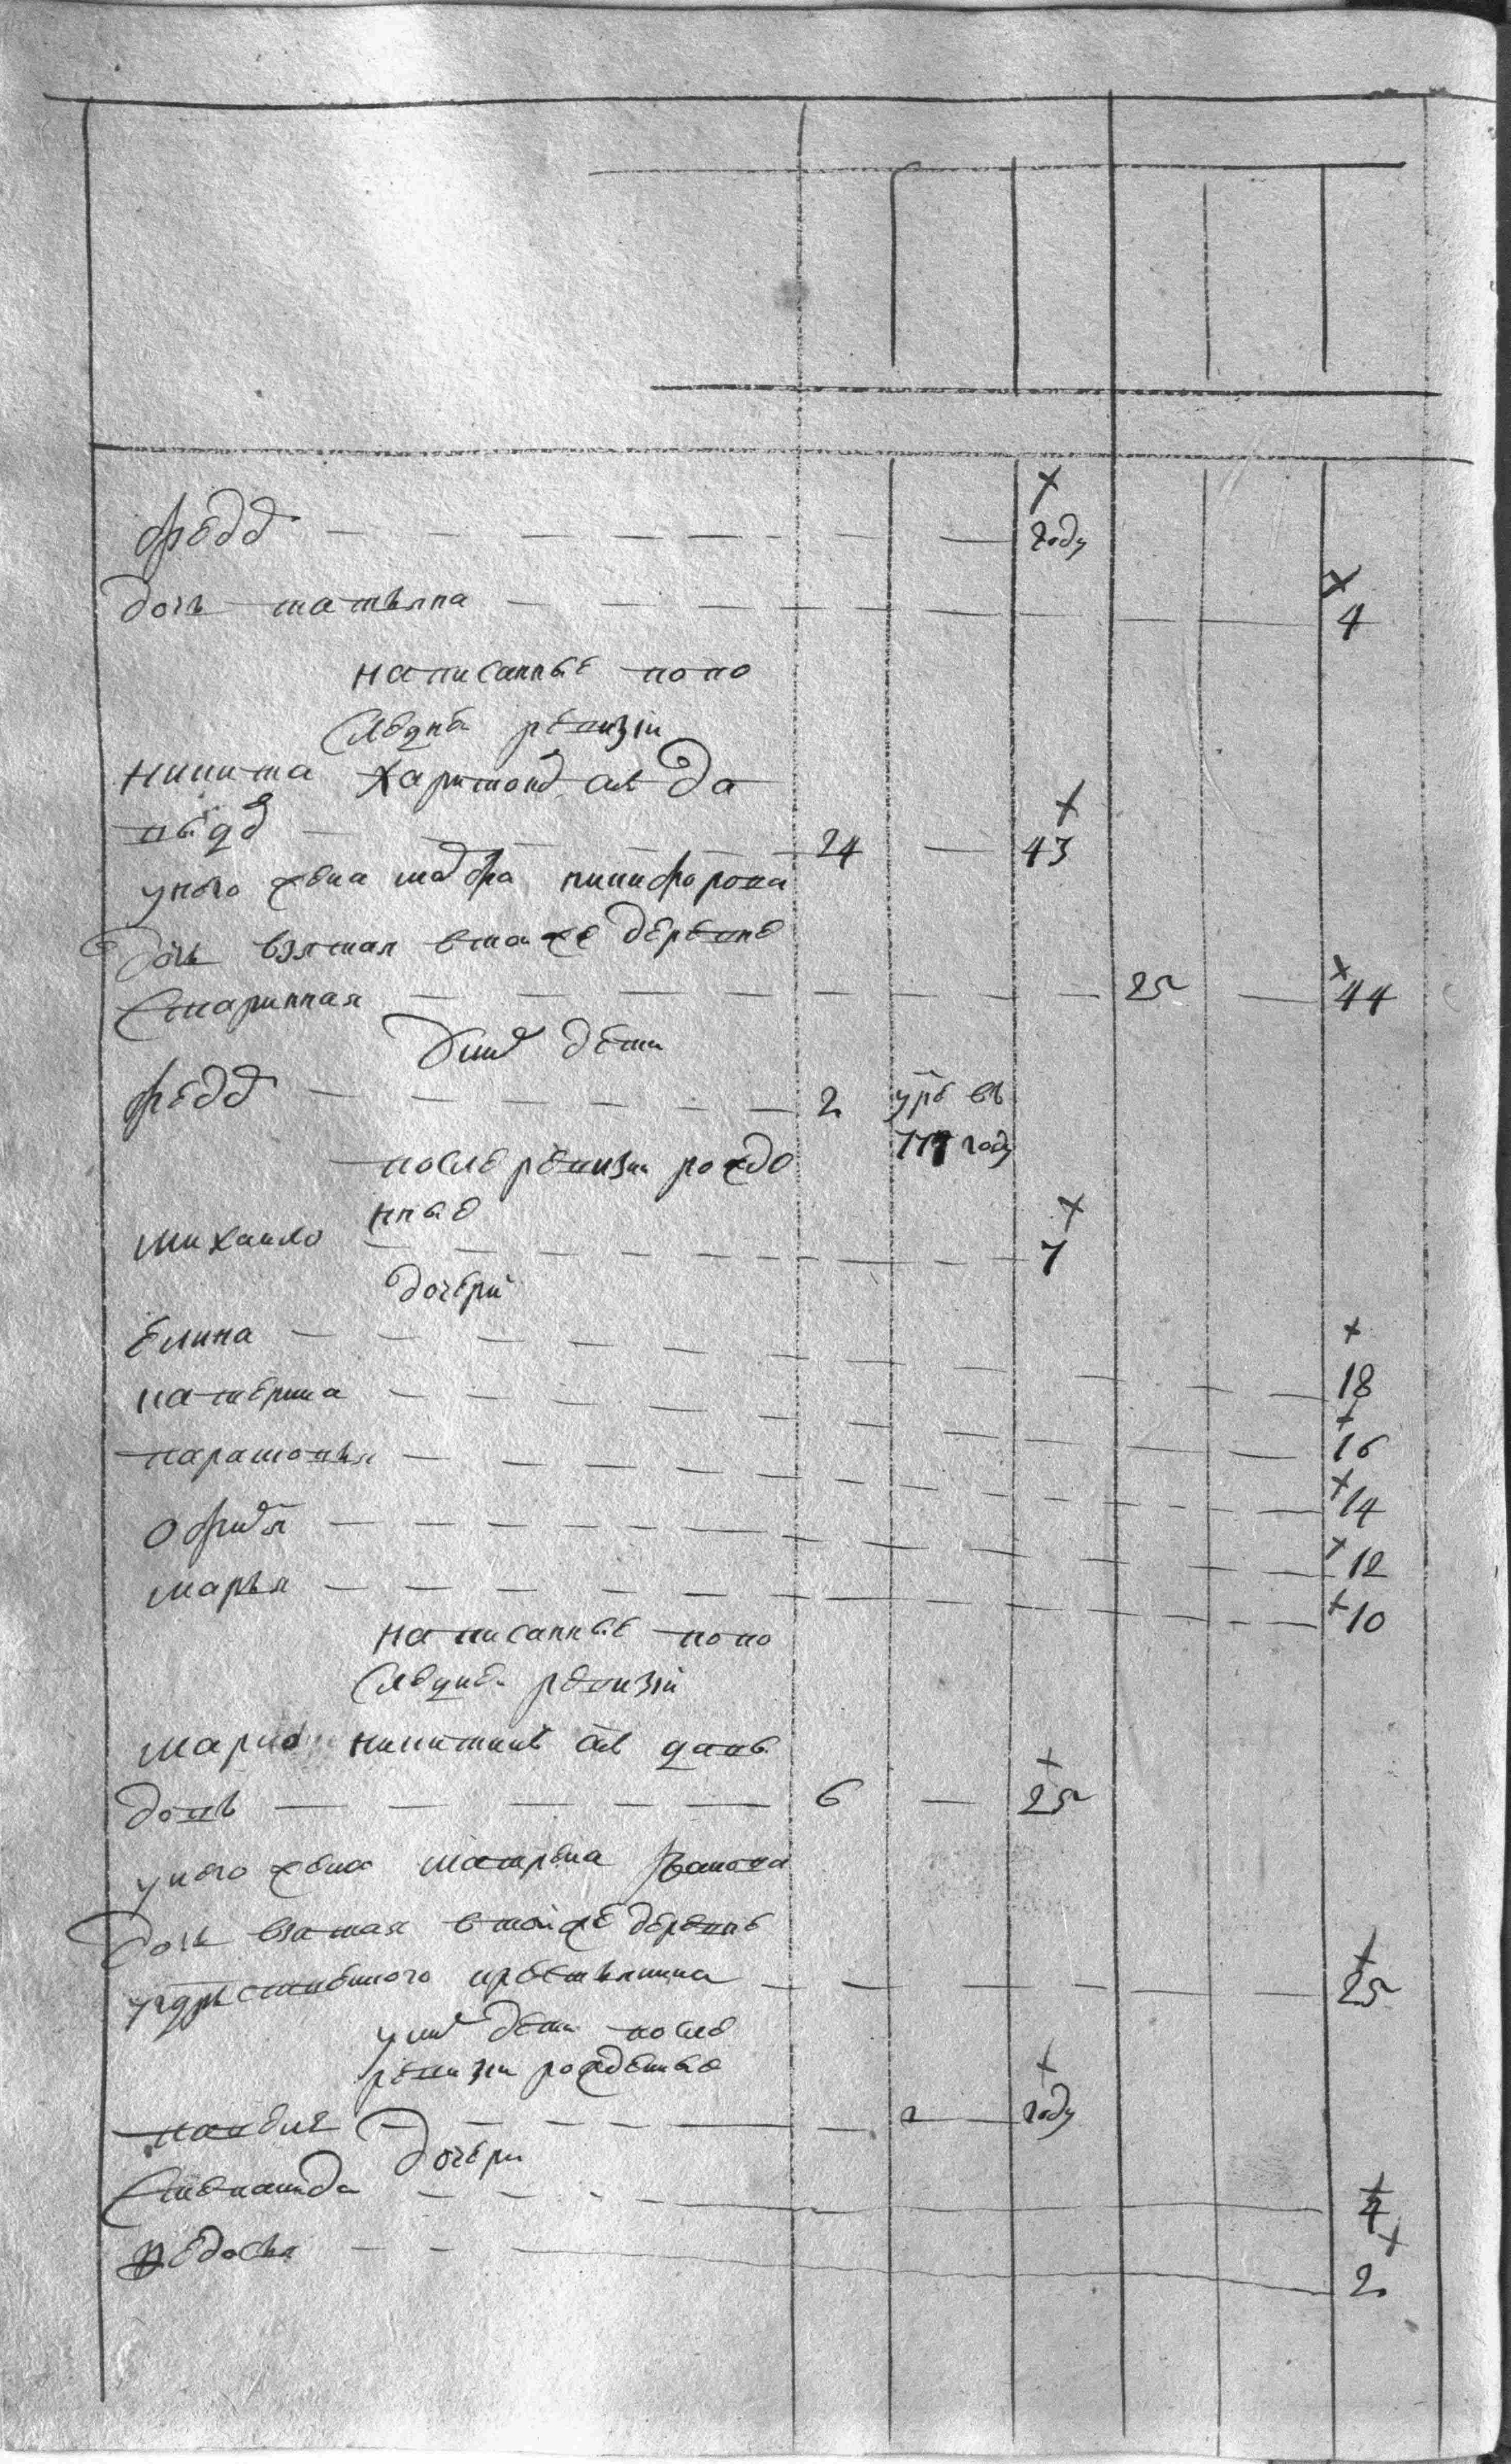 +
федоръ году
+
дочь татьяна 4
написанные попо
следней ревизiи
никита харитоновъ сынъ да
+
24 43
унего жена марфа никифорова
дочь взятая втоже деревне
+
старинная 25 44
унихъ дети
федоръ 2 умре въ
после ревизии рождо году
нные
+
михайло 7
дочери
+
елина 18
+
катерина 16
+
парасковья 14
+
офимья 12
+
марья 10
написанные попо
следней ревизiи
марко никитинъ сынъ
+
6 25
унего жена матрена иванова
дочь взятая втойже деревне
+
крестьянина 25
унихъ дети после
ревизии рожденные
+
году
дочери
+
степанида 4
+
федосья 2